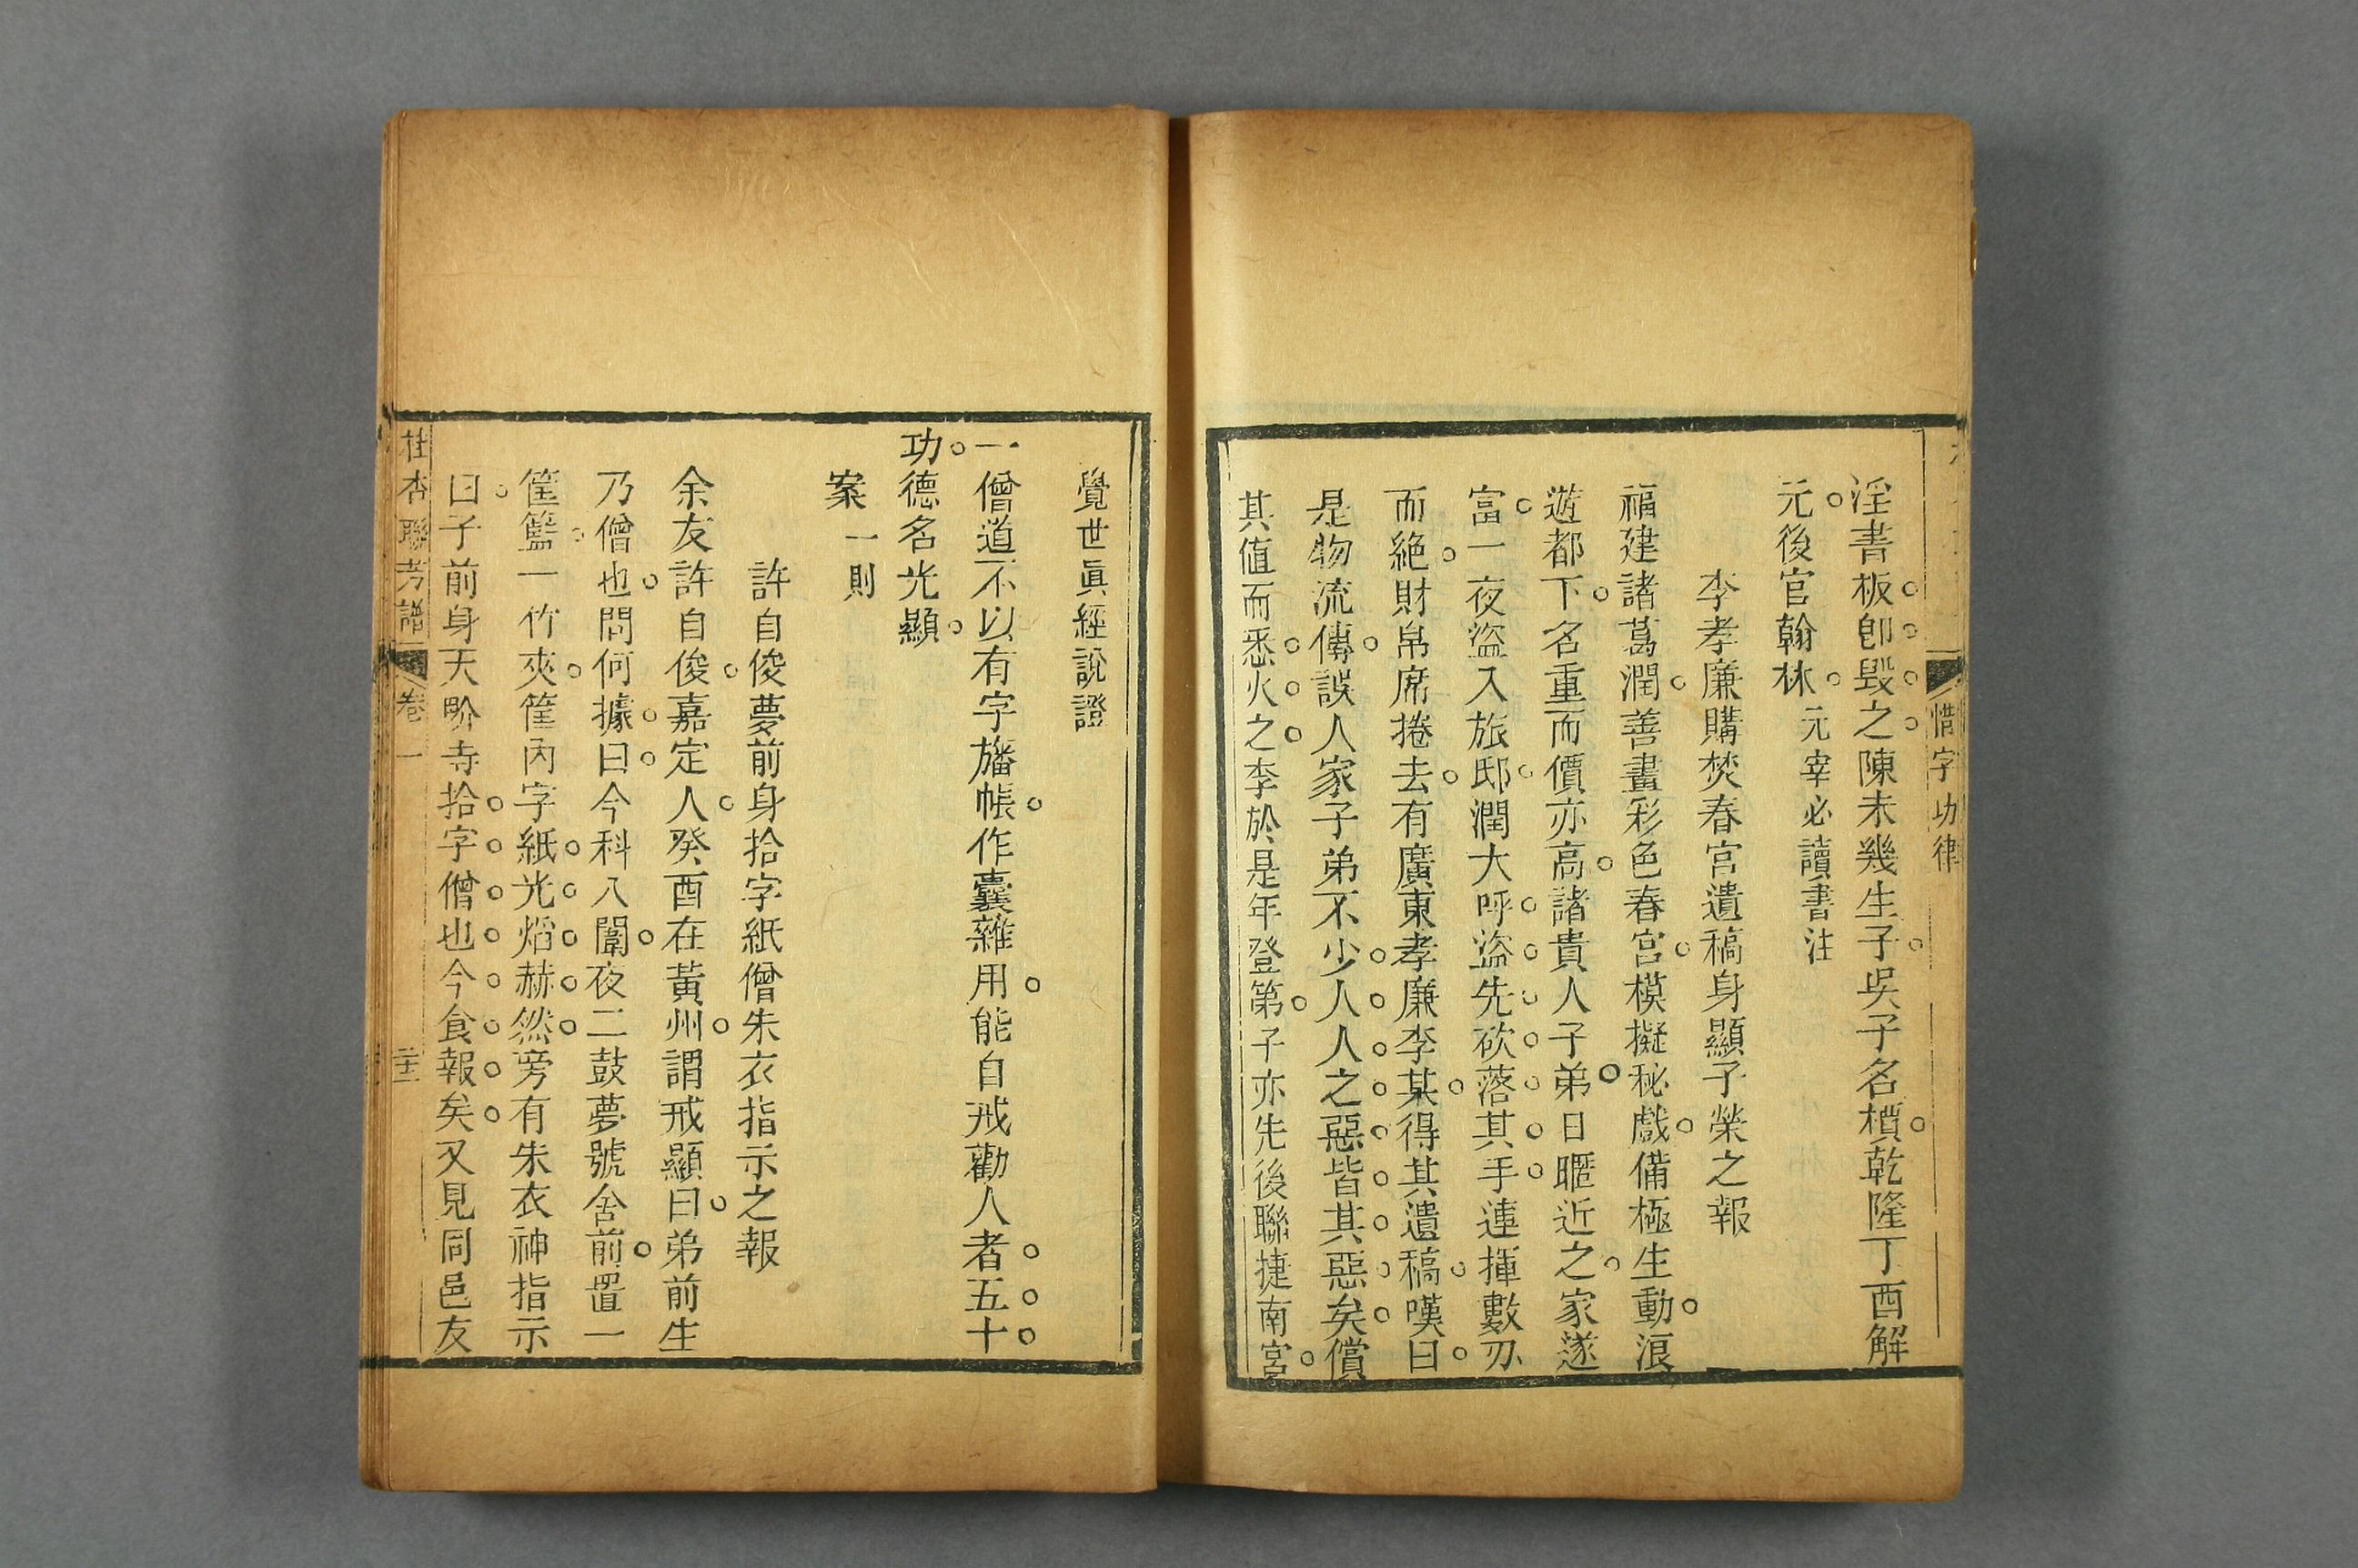 惜字功律
淫書板。卽。毀。之。陳未幾生子。吳子名樻。乾隆丁酉解
元。後官翰林。元宰必讀書注
李孝廉購焚春宮遺稿身顯子榮之報
福建諸葛潤。善畫彩色春宮。模擬秘戲。備極生動。浪
遊都下。名重而價亦高。諸貴人子弟。日暱近之。家遂
富。一夜盜入旅邸。潤大呼。盜。先。砍。落。其。手。連揮數刃
而絕。財帛席捲去。有廣東孝廉李某。得其遺稿。嘆曰。
是物流傳。誤人家子弟不少。人。人。之。惡。皆。其。惡。矣。償
其值而悉。火。之。李於是年登第。子亦先後聯捷南宮。
覺世眞經說證
一僧道不以有字旛帳。作囊雜用。能自戒勸人者。五。十。
功。德名光顯。
案一則
許自俊夢前身拾字紙僧朱衣指示之報
余友許自俊。嘉定人。癸酉在黃州。謂戒顯曰。弟前生
乃僧也。問何據。曰。今科入闈。夜二鼓夢號舍前。置一
筐籃。一竹夾。筐內字紙。光。熖。赫。然。旁有朱衣神指示
曰。子前身天界寺拾。字。僧。也。今。食。報。矣。又見同邑友
桂杏聯芳譜
卷一
二十二